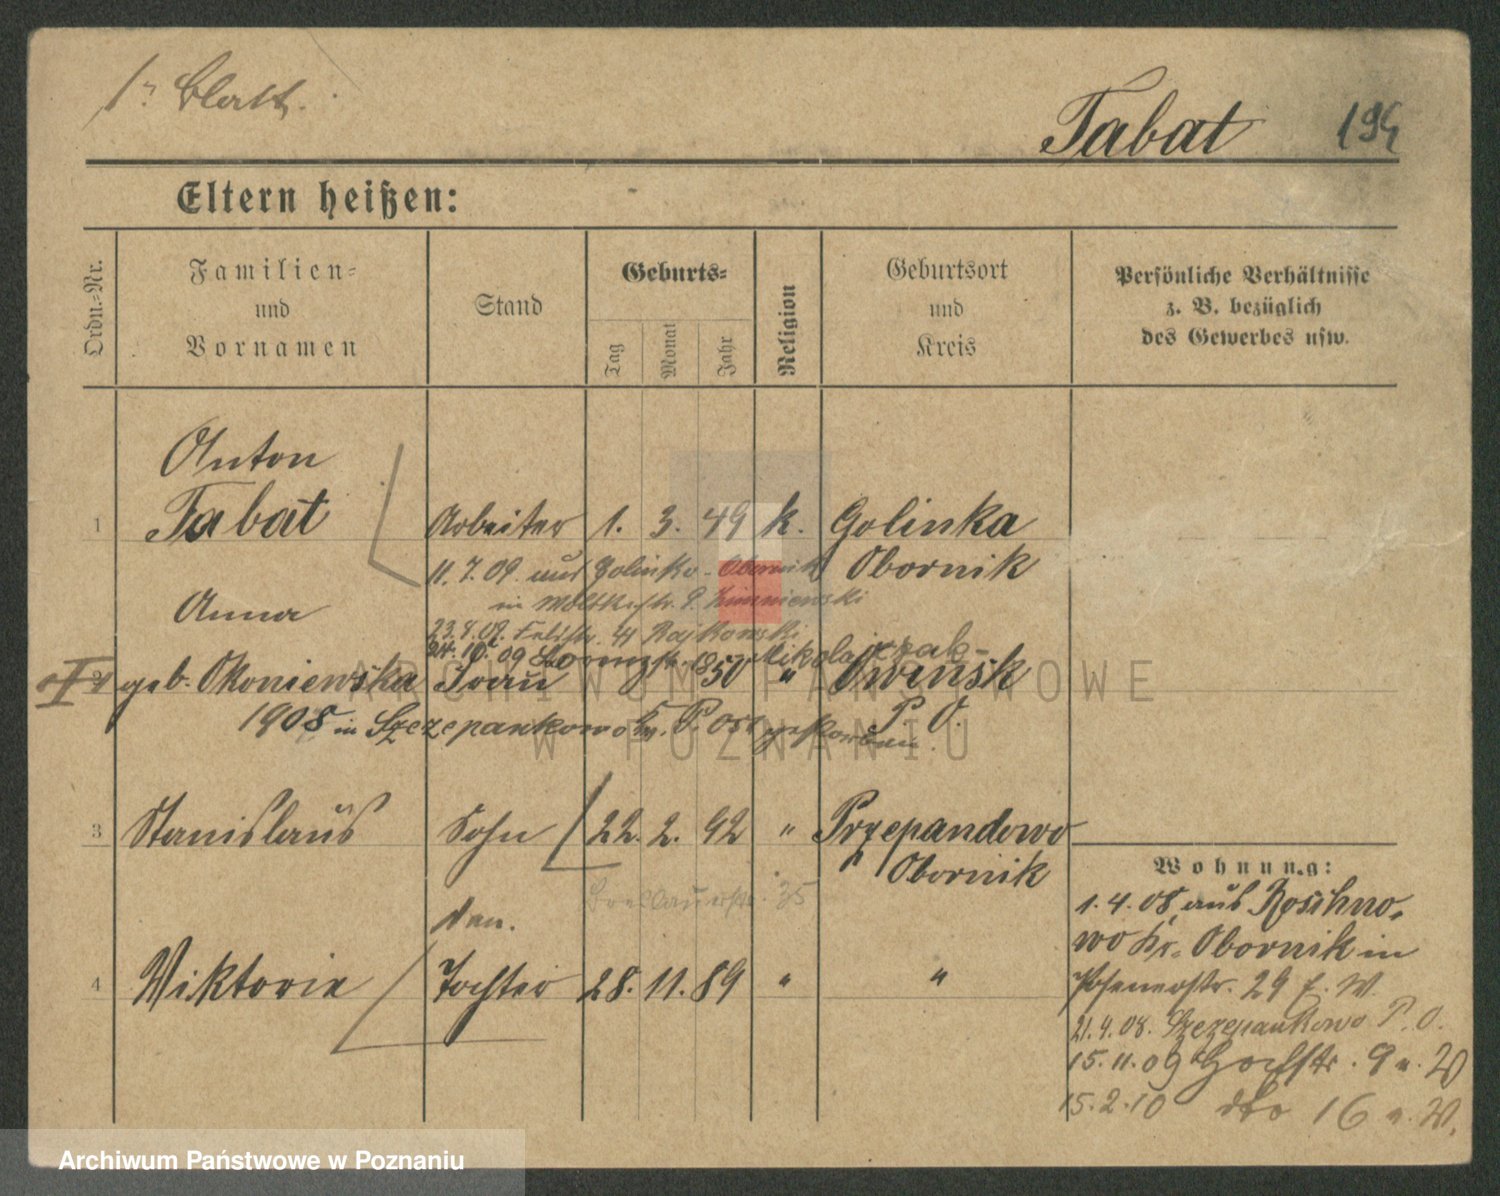 1r Blatt.
Tabat 194
Eltern heißen:
Ordn.-Nr.
Familien-
und
Vornamen
Stand
Geburts-
Tag
Monat
Jahr
Religion
Geburtsort
und
Kreis
Persönliche Verhältnisse
z. B. bezüglich
des Gewerbes usw.
Anton
1 Tabat Arbeiter 1. 3. 49 k. Golinka
11.7.09. aus Golinko - Obornik Obornik
in Moltkestr. 9.
Anna
23.9.09. Feldstr. 41 Rajkowski
24.10. 09 Lorenzstr. Mikolajczak
geb. Okoniewska Frau 1850 " Owinsk
1908 in Szczepankowo Kr. P. Ost gestorben. P. O.
3 Stanislaus Sohn 22. 2. 92 " Przependowo
Obornik
Breslauerstr. 35
den.
4 Viktoria Tochter 28. 11. 89 " "
Wohnung:
1.4.08 aus Roschno-
wo Kr. Obornik in
Posenerstr. 29 b. W.
21.4.08. Szczepankowo P. O.
15.11.09 Hochstr. 9 n. W
15.2.10 dto 16 n. W.
ARCHIWUM PAŃSTWOWE
W POZNANIU
Archiwum Państwowe w Poznaniu